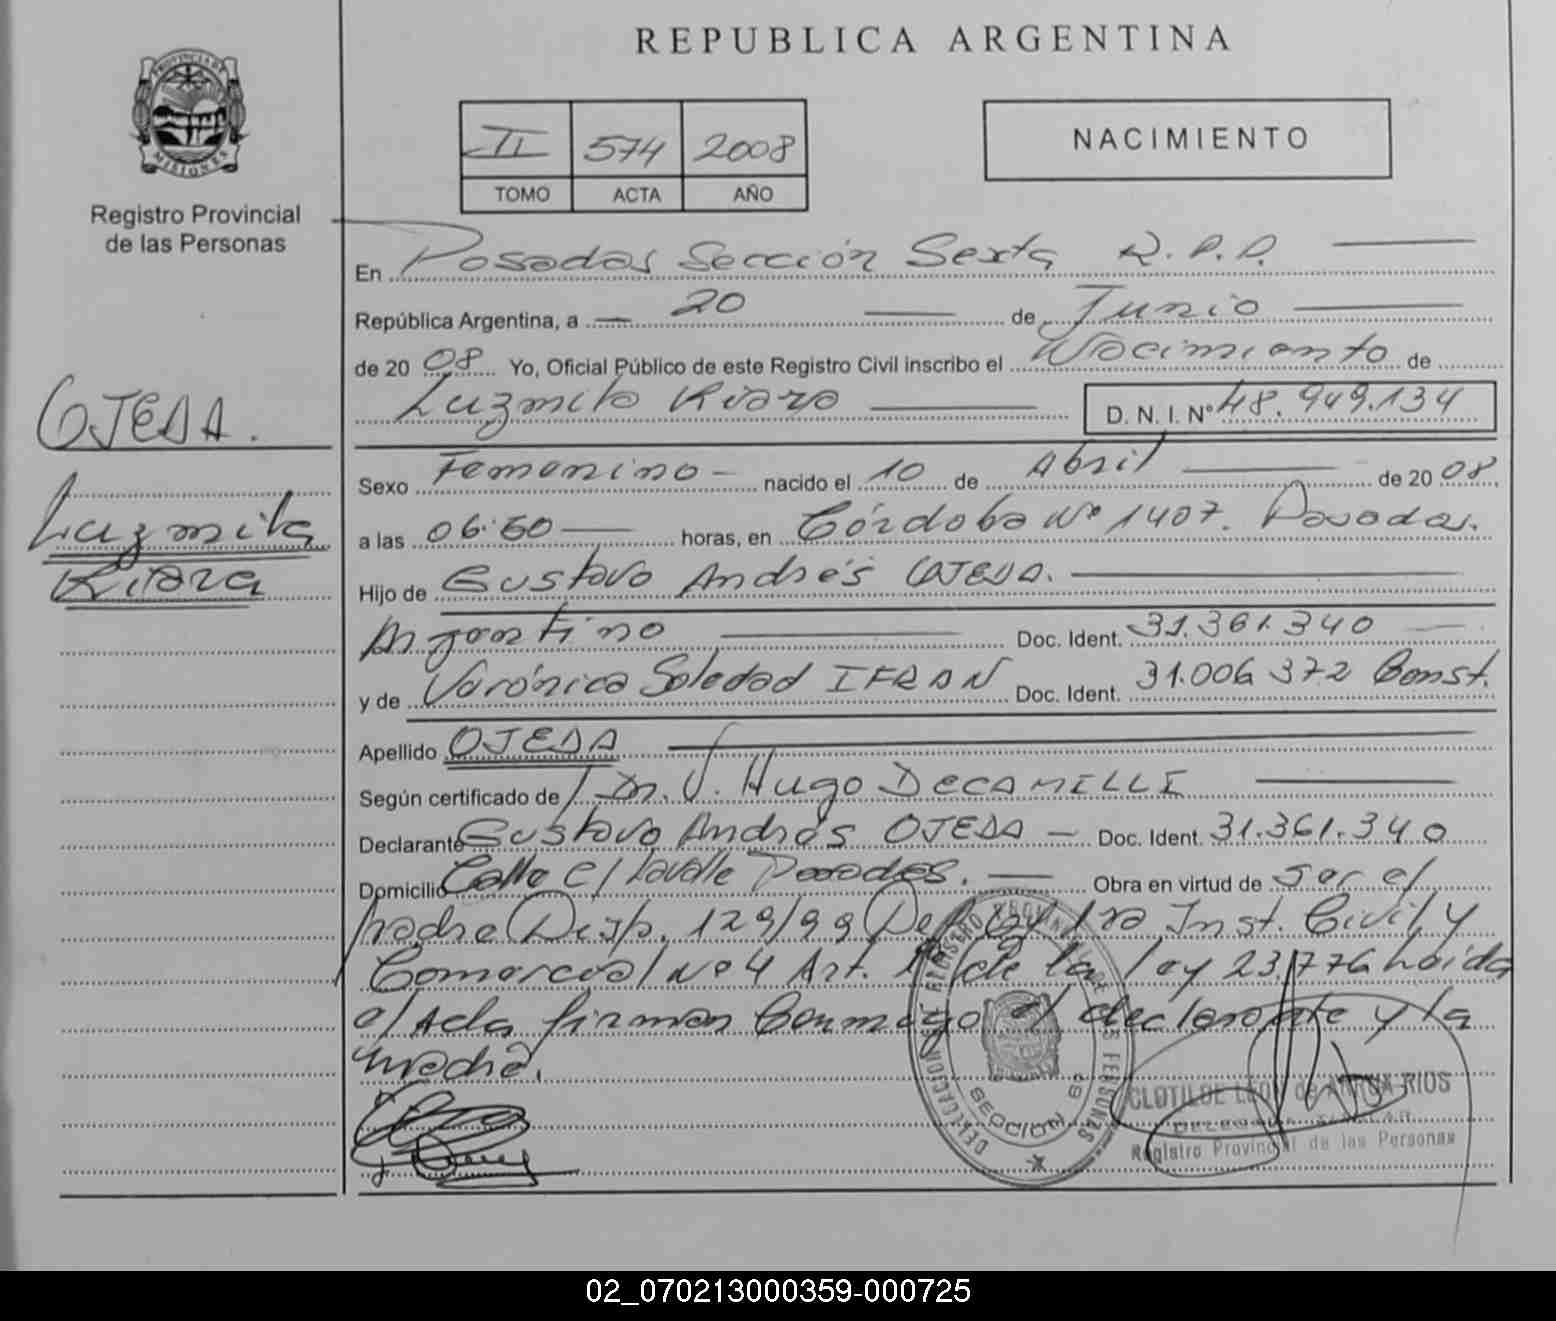 REPUBLICA ARGENTINA
PROVINCIA DE
MISIONES
Registro Provincial
de las Personas
II 574 2008
TOMO ACTA AÑO
NACIMIENTO
En Posadas Sección Sexta R.P.P.
República Argentina, a 20 de Junio
de 2008 Yo, Oficial Público de este Registro Civil inscribo el Nacimiento de
Luzmila Kiara D. N. I. Nº 48.949.134
OJEDA.
Luzmila
Kiara
Sexo Femenino nacido el 10 de Abril de 2008,
a las 06:50 horas, en Córdoba Nº 1407. Posadas.
Hijo de Gustavo Andrés OJEDA.
Argentino Doc. Ident. 31.361.340
y de Verónica Soledad IFRAN Doc. Ident. 31.006.372 Const.
Apellido OJEDA
Según certificado de Dr. V. Hugo DECAMILLI
Declarante Gustavo Andrés OJEDA Doc. Ident. 31.361.340
Domicilio Calle C/ Lavalle Posadas. Obra en virtud de Ser el
padre Disp. 129/99 1ra Inst. Civil y
Comercial Nº 4 Art. 1º de la ley 23.776 Leída
el Acta firman Conmigo el declarante y la
madre.
DELEGACION DE REGISTRO PROVINCIAL DE LAS PERSONAS
SECCION 6ª
CLOTILDE LEON de
DELEGADA TITULAR
Registro Provincial de las Personas
02_070213000359-000725